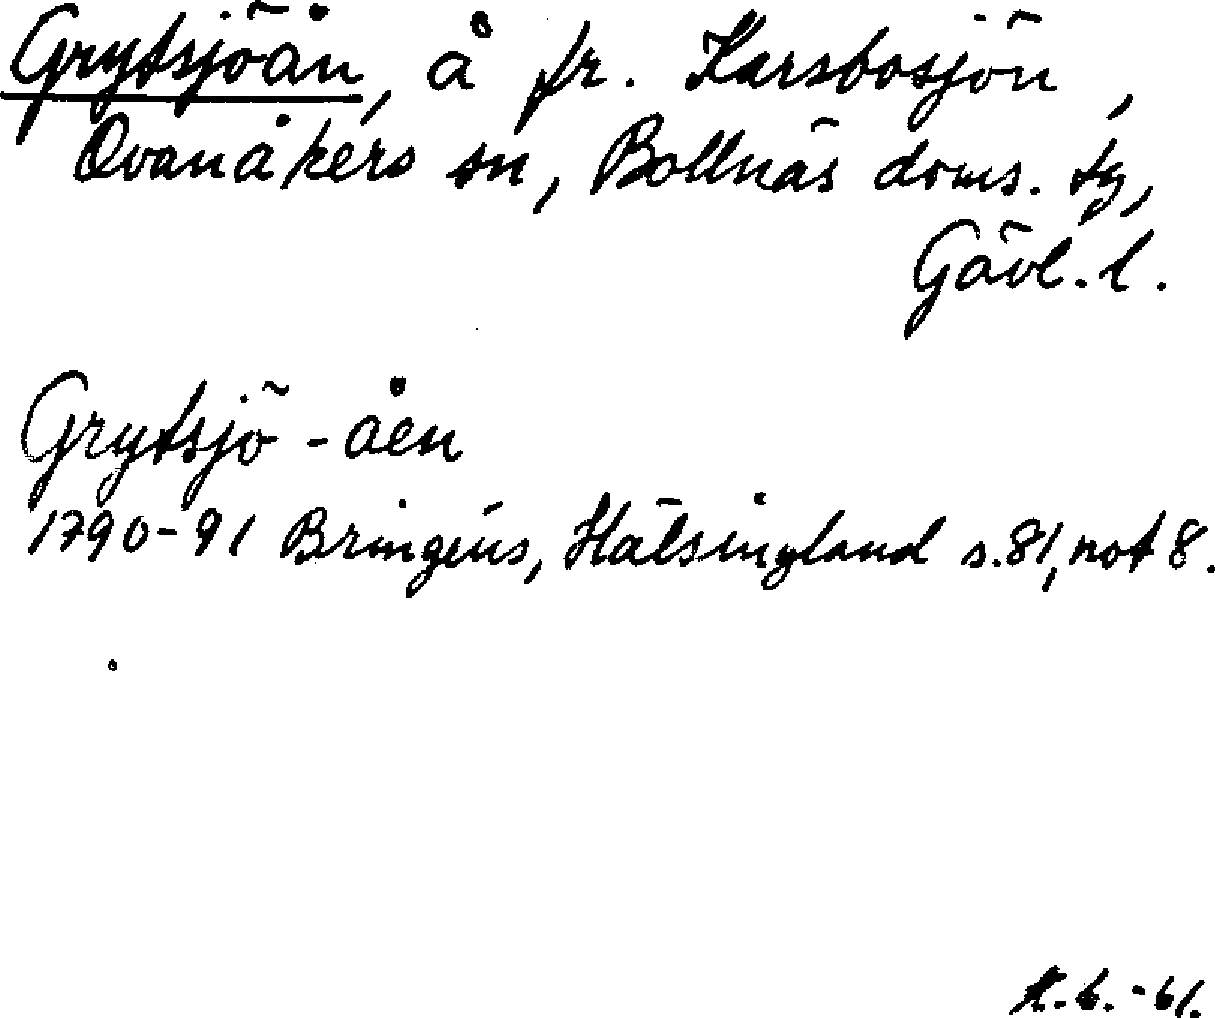 Grytsjöån, å fr. Karsbosjön,
Ovanåkers sn, Bollnäs doms. tg,
Gävl. l.
Grytsjö-åen
1790-91 Bringéus, Hälsingland s. 81, not 8.
-61.